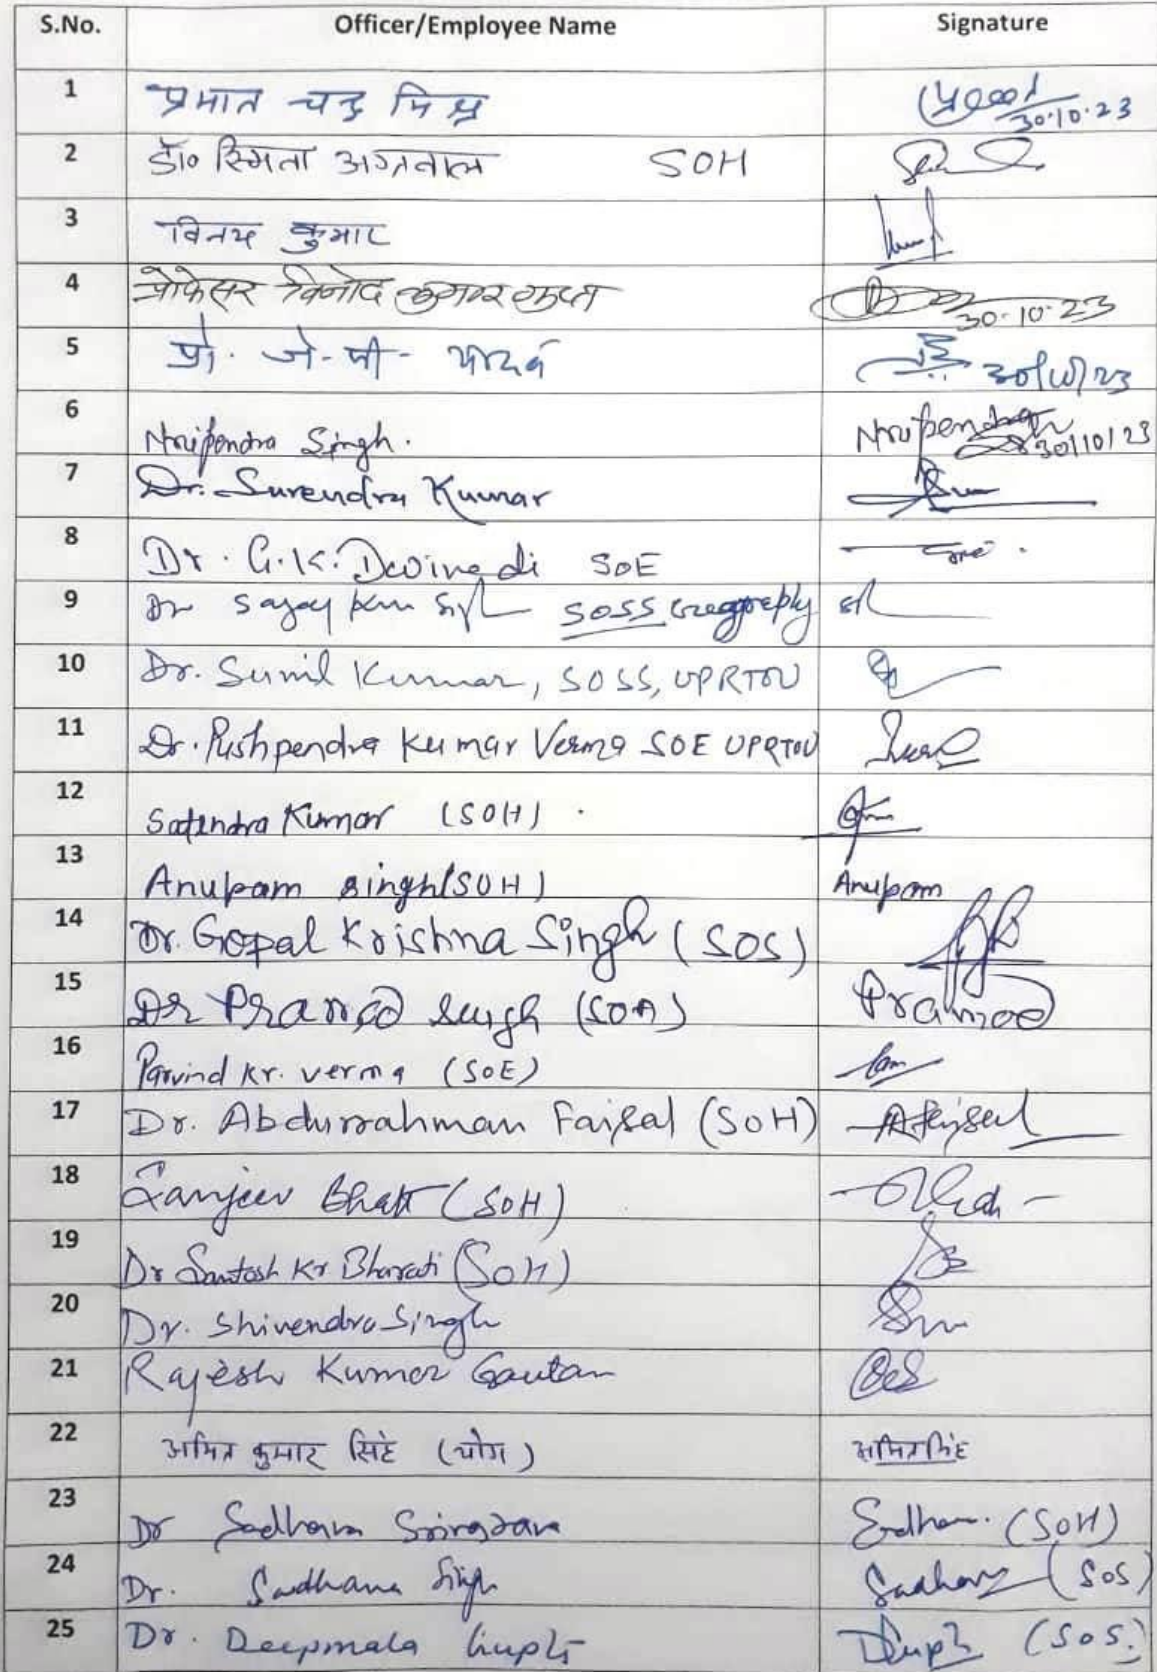 S.No. Officer/Employee Name Signature
1 प्रभात चन्द्र मिश्र 30.10.23
2 डॉ० स्मिता अग्रवाल SOH
3 विनय कुमार
4 प्रोफेसर विनोद कुमार गुप्त 30.10.23
5 प्रो. जे-पी- यादव 30/10/23
6 Nripendra Singh. Nripendra 30/10/23
7 Dr. Surendra Kumar
8 Dr. G.K. Dwivedi SOE
9 Dr Sanjay Kum Singh SOSS Geography
10 Dr. Sunil Kumar, SOSS, UPRTOU
11 Dr. Pushpendra Kumar Verma SOE UPRTOU
12 Satendra Kumar (SOH)
13 Anupam Singh (SOH) Anupam
14 Dr. Gopal Krishna Singh (SOS)
15 Dr Pramod Singh (SOA) Pramod
16 Parvind Kr. Verma (SOE)
17 Dr. Abdurrahman Faisal (SOH) AFaisal
18 Sanjeev Bhatt (SOH)
19 Dr Santosh Kr Bharati (SOH)
20 Dr. Shivendra Singh
21 Rajesh Kumar Gautam
22 अमित कुमार सिंह (योग) अमित सिंह
23 Dr Sadhana Srivastava (SOH)
24 Dr. Sadhana Singh Sadhana (SOS)
25 Dr. Deepmala Gupta DGupta (SOS.)